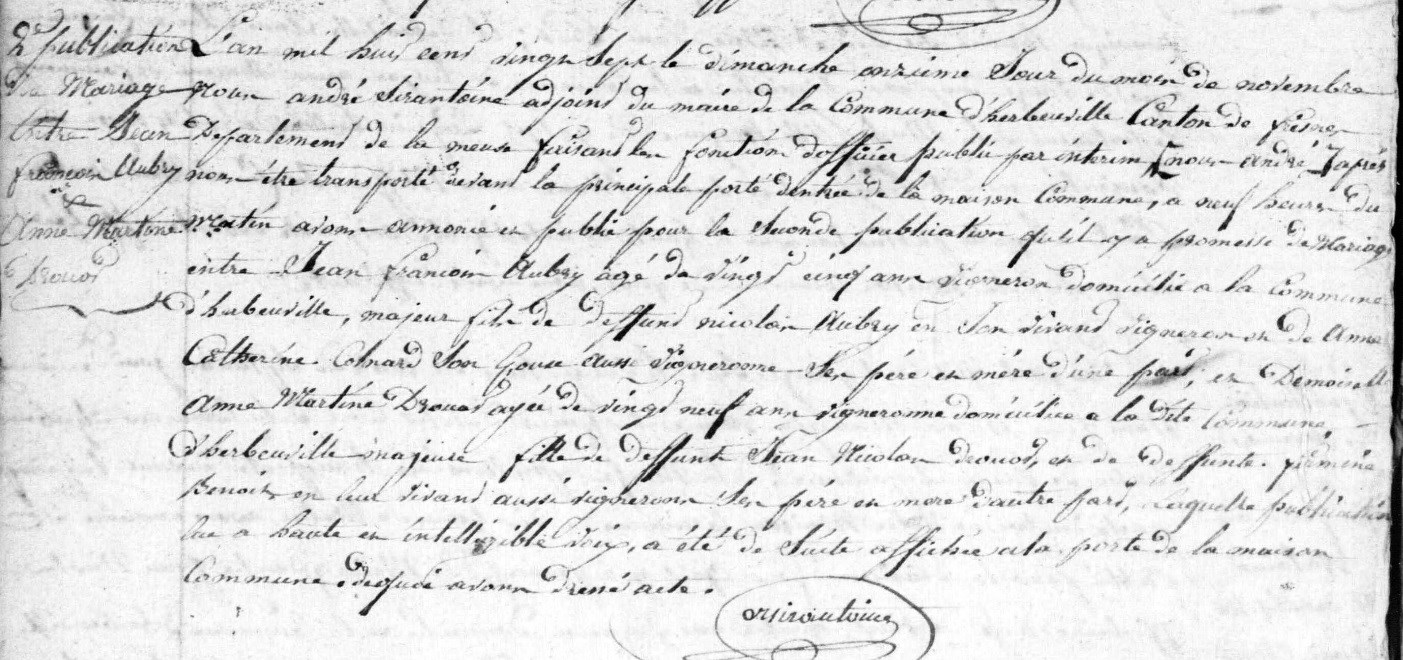 2e publication
de Mariage
Entre Jean
François Aubry
et
Anne Martine
Drouot
L'an mil huit cent vingt Sept le dimanche onzieme Jour du mois de novembre
Nous andré Sirantoine adjoint du maire de la Commune d'herbeuville Canton de fresnes
Departement de la meuse faisant les fonctions dofficier public par interim nous andré après
nous être transporté devant la principale porte dentrée de la maison Commune, a neuf heures du
matin avons annoncé et publié pour la seconde publication qu'il y a promesse de Mariage
entre Jean françois Aubry agé de vingt cinq ans vigneron domicilié a la Commune
d'herbeuville, majeur fils de deffunt nicolas Aubry en Son vivant vigneron et de Anne
Catherine Colnard Son Epouse aussi vigneronne Ses père et mère d'une part, et Demoiselle
Anne Martine Drouot agée de vingt neuf ans vigneronne domiciliée a la dite Commune
d'herbeuville majeure fille de deffunt Jean Nicolas drouot, et de deffunte firmine
Benoit en leur vivant aussi vignerons Ses père et mere d'autre part, Laquelle publication
lue a haute et intelligible voix, a été de Suite affichée a la porte de la maison
Commune dequoi avons dressé acte.
Asirantoine